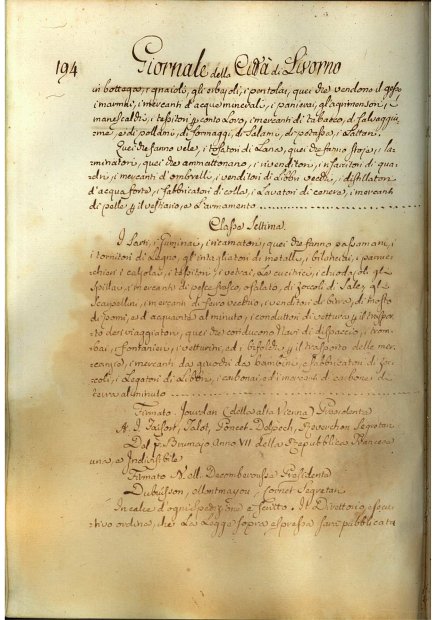 194 Giornale della Città di Livorno
in bottega, i gnaioli, gli orbajoli, i pentolai, quei che vendono il gesso
i marmisti, i mercanti d'acque minerali, i panierai, gli agrimensori, i
maniscalchi, i tessitori p conto loro, i mercanti di tabacco, di salvaggiu
me, e di pollami, di formaggi, di salami, di potassa, i Lattari.
Quei che fanno vele, i tosatori di Lana, quei che fanno stoje, i la
minatori, quei che ammattonano, i rivenditori, i
dri, i mercanti d'ombrelli, i venditori di libri vecchi, i distillatori
d'acqua forte, i fabbricatori di colla, i Lavatori di cenere, i mercanti
di pelle p il vestiario, e l'armamento
Classe Settima.
I Sarti, i ricamatori, quei che fanno passamani, i
i tornitori di Legno, gl'intagliatori di metalli, i bilanciai, i panniec
chieri i calzolai, i tessitori, i vetrai, le cucitrici, i chiodajoli gli
Spillai, i mercanti di pesce fresco, e salato, di zoccoli di Sale, gli
Scarpellini, i mercanti di ferro vecchio, i venditori di birra, di mosto
di pomi, ed acquavite al minuto, i conduttori di vetture p il traspor
to dei viaggiatori, quei che conducono Navi di dispaccio, i trom
bai, i fontanieri, i vetturini, ed i bifolchi p il trasporto delle mer
canzie, i mercanti da giuochi da bambini, e fabbricatori di zoc
coli, i Legatori di Libbri, i carbonai, ed i mercanti di carbone di
terra al minuto
Firmato Jourdan (della alta Vienna) Presidente
A. I. Talot, Poncet Delpech, Boverchon Segretari
Dal p. Brumajo Anno VII della Repubblica Francese
una, e Indivisibile
Firmato N. Decomberousse Presidente
Dubuisson, Montmayou, Cornet Segretari
In calce d'ogni spedizione è scritto. Il Direttorio esecu
tivo ordina, che La Legge sopra espressa sarà pubblicata